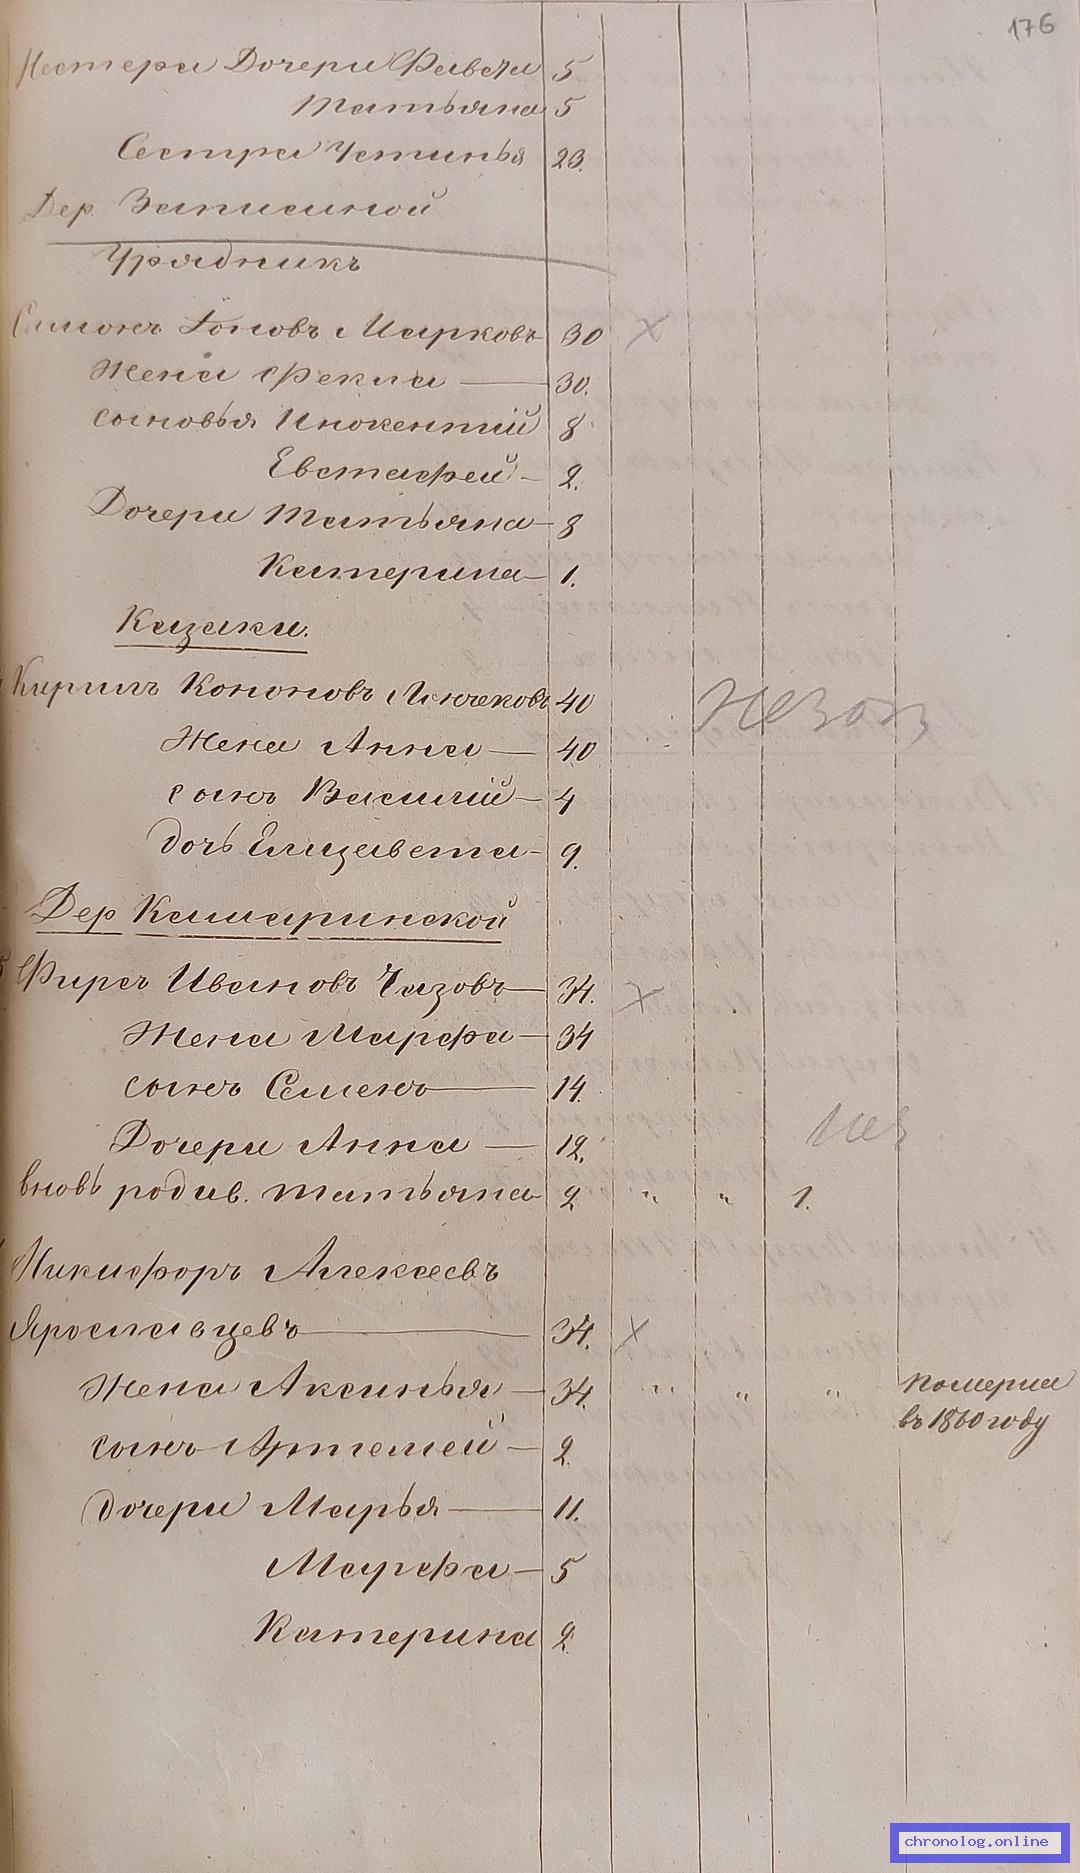 176
Нестера Дочери Фавста 5
Татьяна 5
Сестра Устинья 23.
Дер. Записиной
Урядникъ
Симонъ Іоновъ Марковъ 30
Жена Фекла 30.
сыновья Инокентій 8
Евстафей 2.
Дочери Татьяна 8
Катерина 1.
Казаки.
Кирилъ Кононовъ 40
Жена Анна 40
сынъ Василій 4
дочь Елизавета 9.
Дер Кашаринской
Фирсъ Ивановъ Чазовъ 34.
Жена Марфа 34
сынъ Семенъ 14.
Дочери Анна 12.
вновь родив. Татьяна 2 " " 1.
Никифоръ Алексеевъ
Ярославцевъ 34.
Жена Аксинья 34. " " " померла
въ 1860 году
сынъ Артемей 2.
дочери Марья 11.
Марфа 5
Катерина 2.
chronolog.online